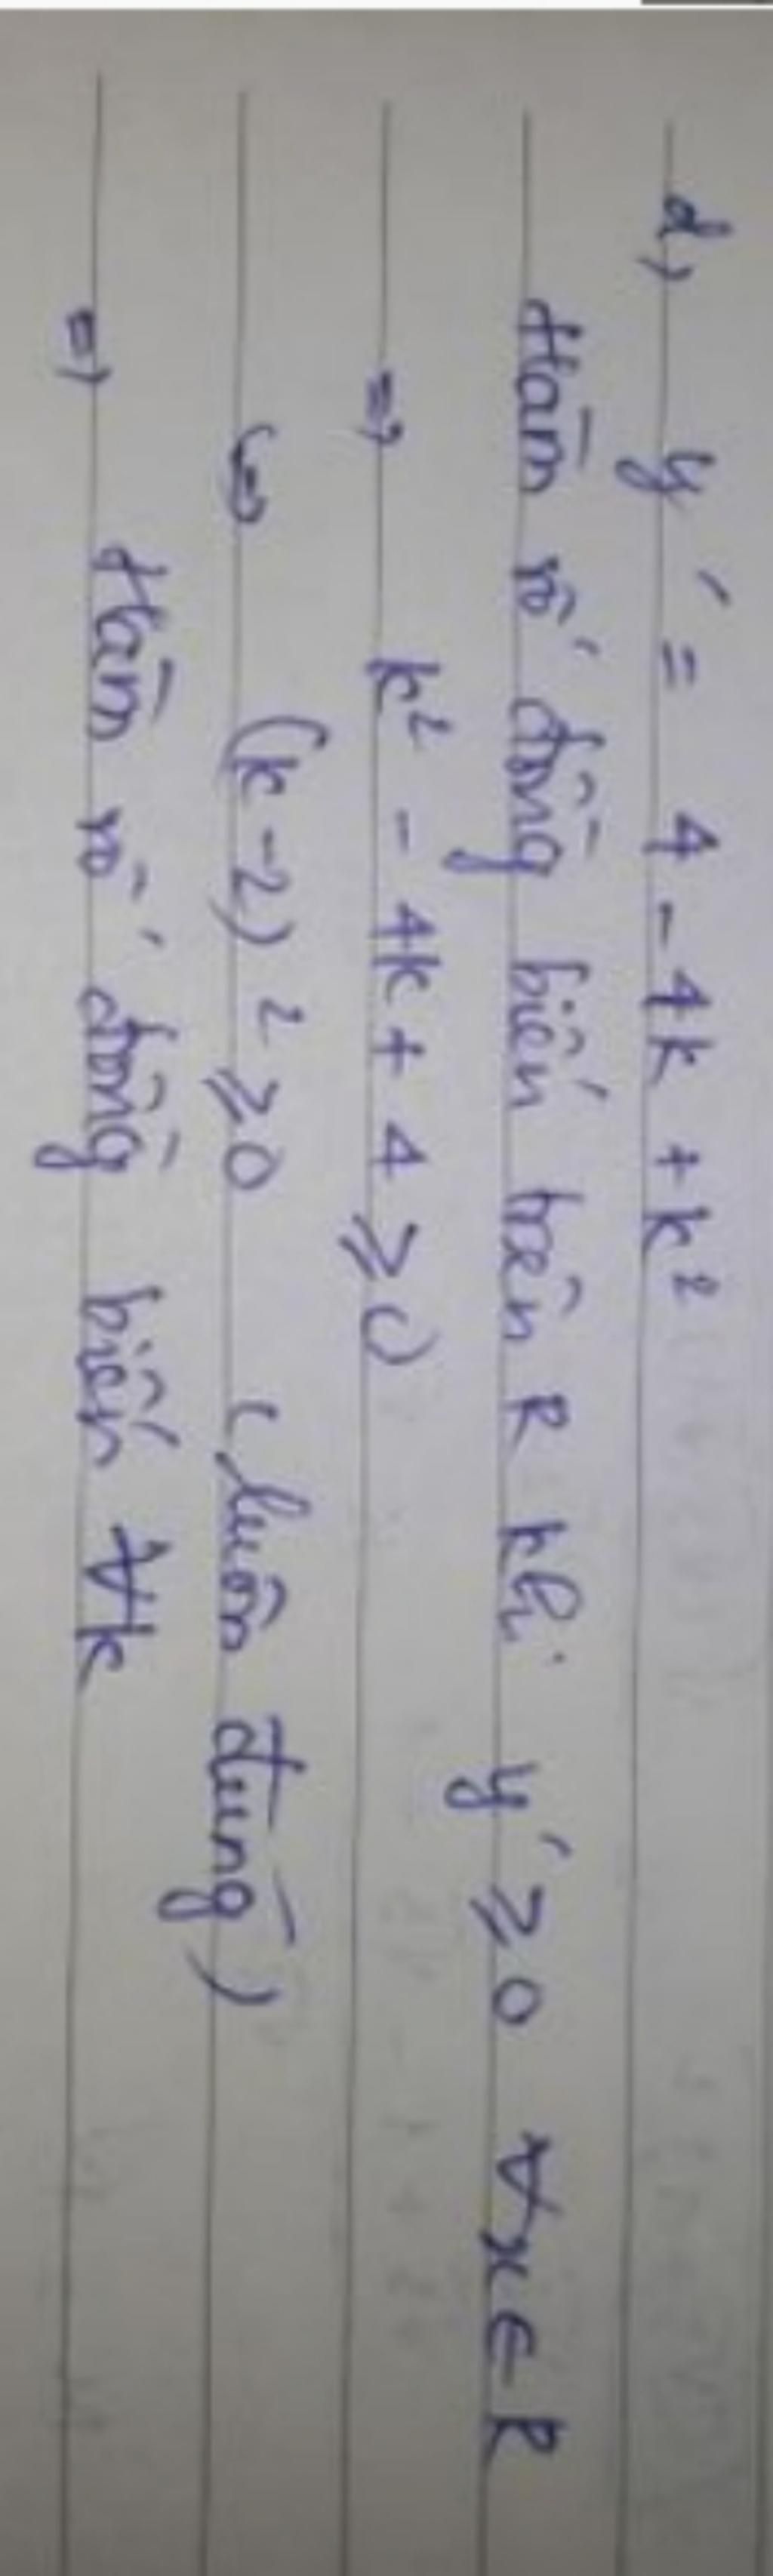 d, y' = 4 - 4k + k²
Hàm số đồng biến trên R khi y' ≥ 0 ∀x ∈ R
=> k² - 4k + 4 ≥ 0
<=> (k - 2)² ≥ 0 (luôn đúng)
=> Hàm số đồng biến ∀k